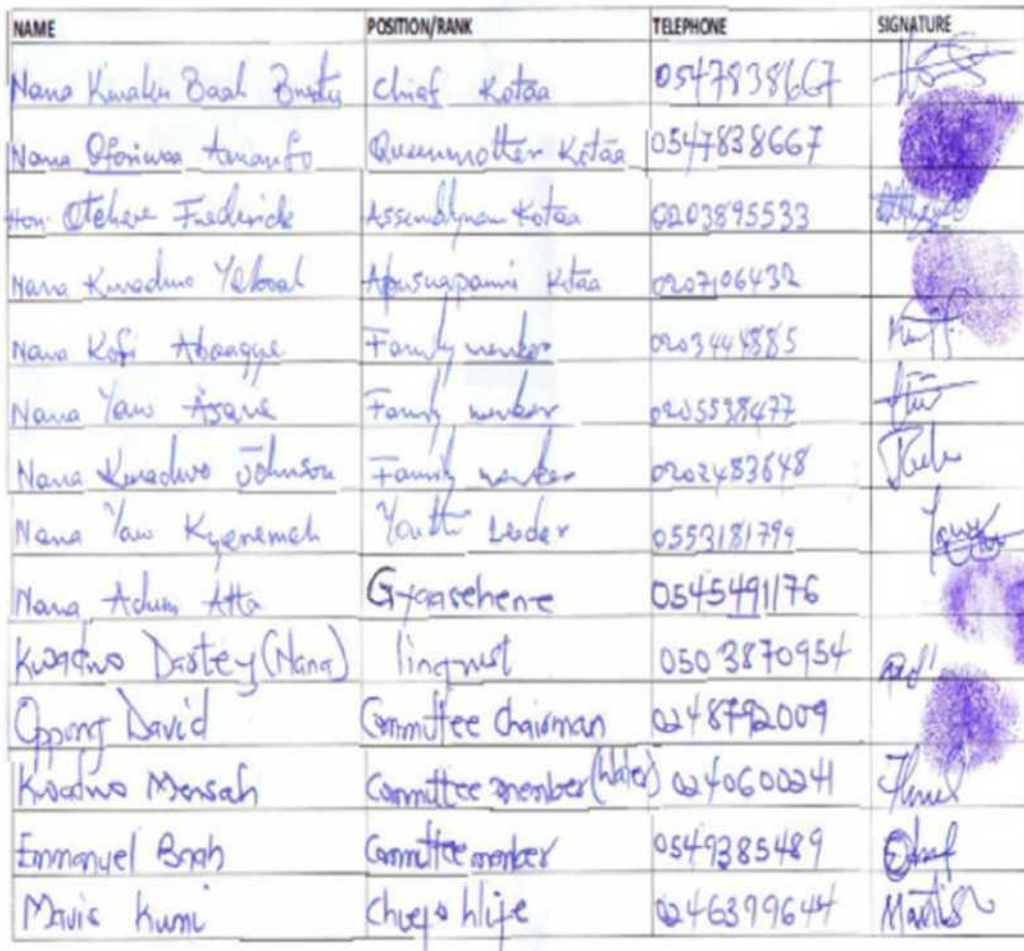 NAME POSITION/RANK TELEPHONE SIGNATURE
Nana Kwaku Baah Chief Kotaa 0547838667
Nana Oforiwaa Amanfo Queenmother Kotaa 0547838667
Hon. Otchere Frederick Assemblyman Kotaa 0203895533
Nana Kwadwo Yeboah Abusuapanni Kotaa 0207106432
Nana Kofi Aboagye Family member 0203444885
Nana Yaw Asare Family member 0205538477
Nana Kwadwo Johnson Family member 0202483648
Nana Yaw Kyenemeh Youth Leader 0553181799
Nana Adum Atta Gyaasehene 0545491176
Kwadwo Dartey (Nana) linguist 0503870954
Oppong David Committee Chairman 0248792009
Kwadwo Mensah Committee member (Water) 0240600241
Emmanuel Baah Committee member 0549385489
Mavis Kumi Chief's Wife 0246399644